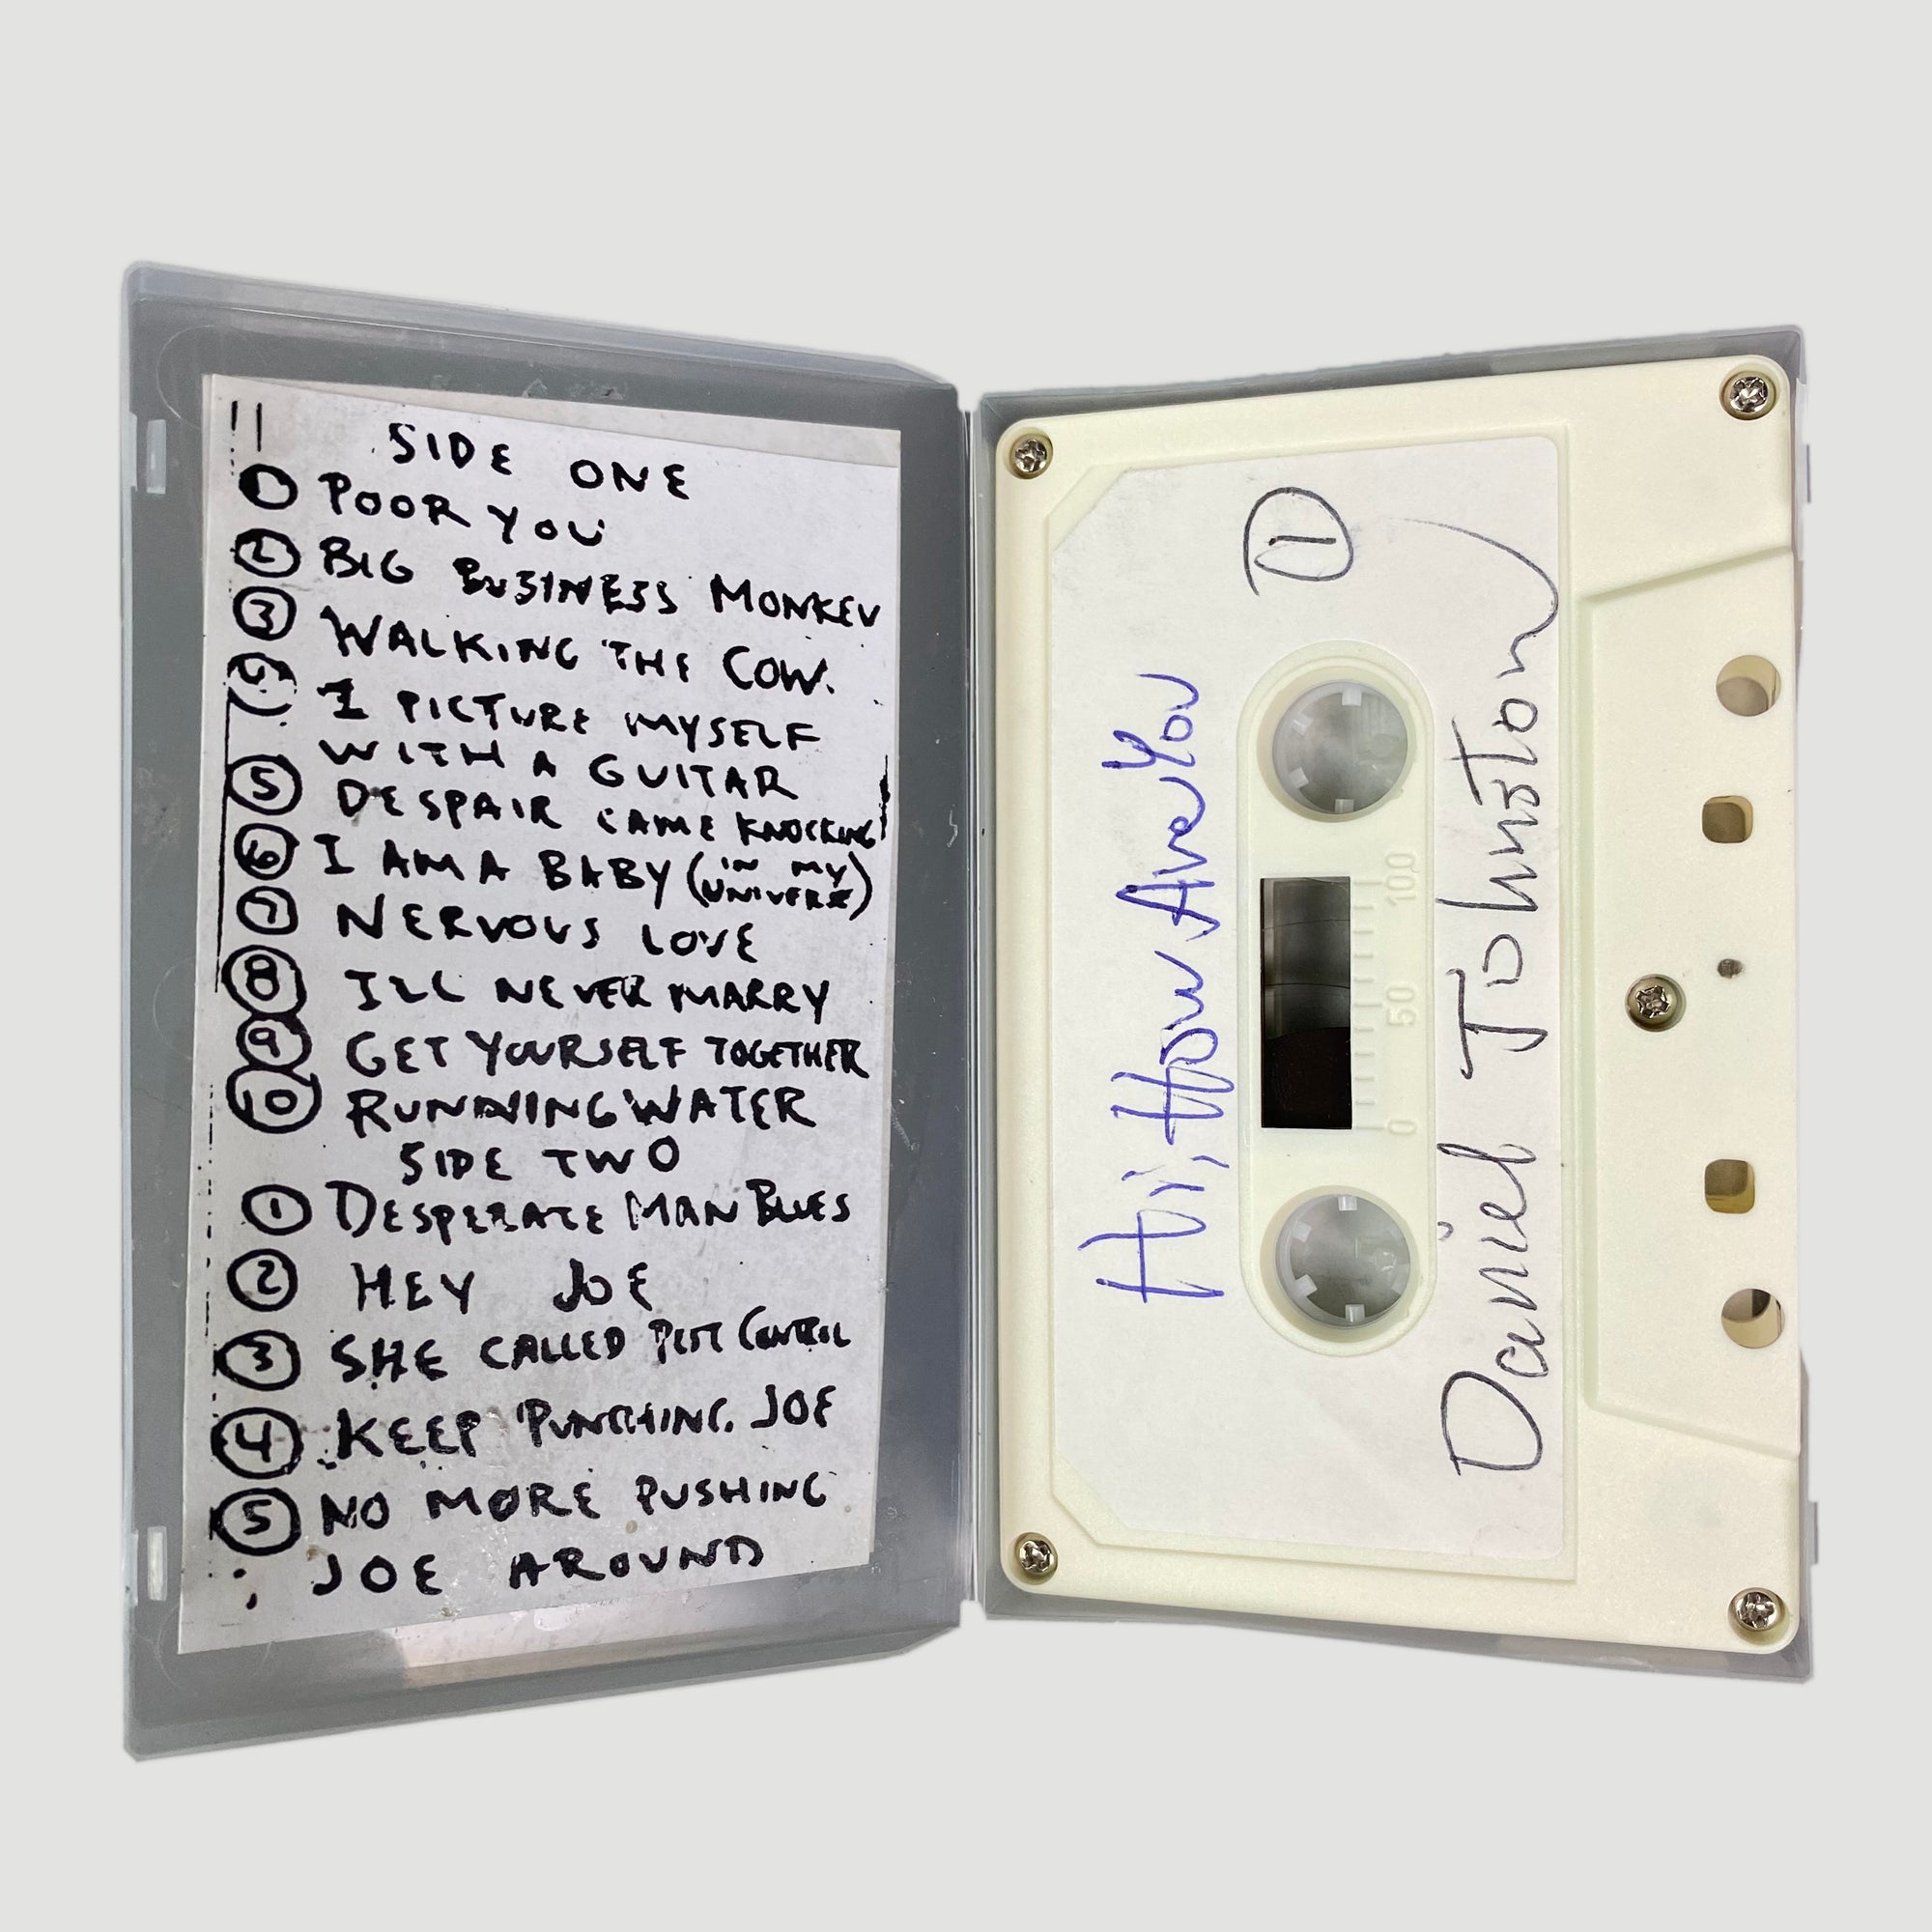 SIDE ONE
1 POOR YOU
2 BIG BUSINESS MONKEY
3 WALKING THE COW.
I PICTURE MYSELF
WITH A GUITAR
5 DESPAIR CAME KNOCKING
6 I AM A BABY (IN MY UNIVERSE)
7 NERVOUS LOVE
8 ILL NEVER MARRY
9 GET YOURSELF TOGETHER
10 RUNNING WATER
SIDE TWO
1 DESPERATE MAN BLUES
2 HEY JOE
3 SHE CALLED PEST CONTROL
4 KEEP PUNCHING JOE
5 NO MORE PUSHING
JOE AROUND
1
Hi, How Are You
100
50
0
Daniel Johnston